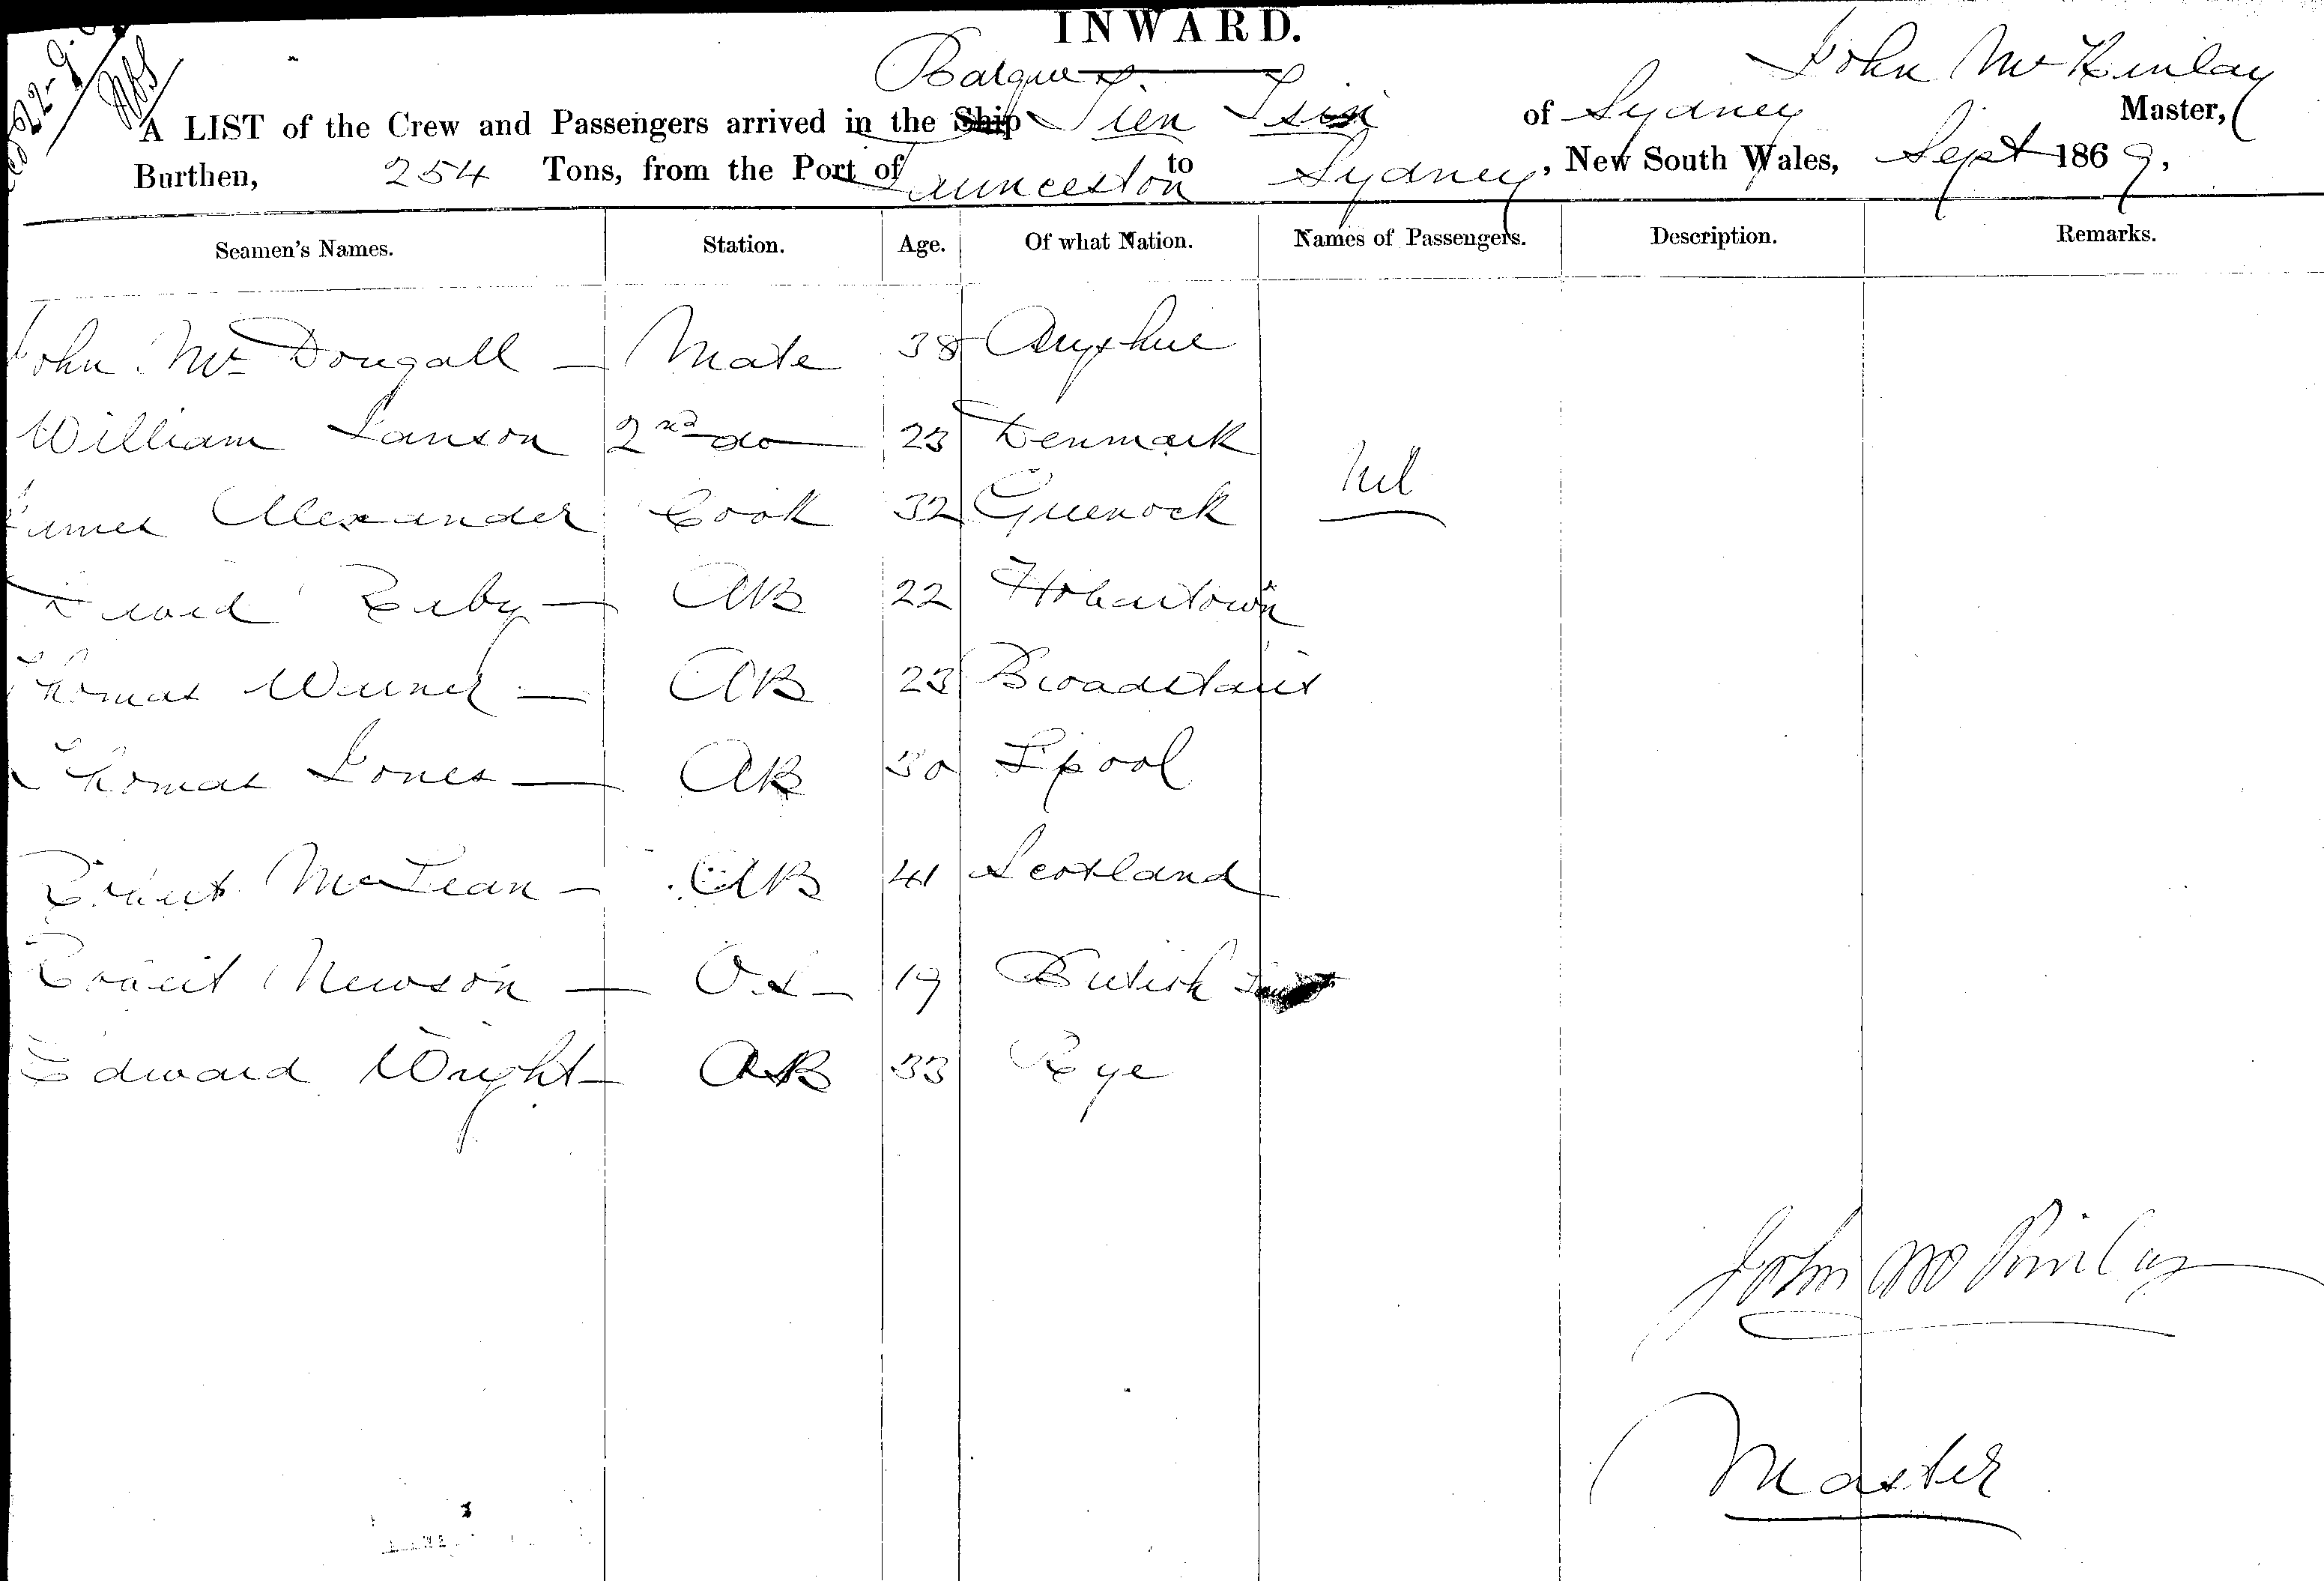 INWARD.
22-9-
Barque John McKinlay
A LIST of the Crew and Passengers arrived in the Ship Tien Tsin of Sydney Master,
Burthen, 254 Tons, from the Port of Launceston to Sydney, New South Wales, Sept 1869.
Seamen's Names. Station. Age. Of what Nation. Names of Passengers. Description. Remarks.
John McDougall — Mate 38 Argyshire
William Lanson 2nd do 23 Denmark
James Alexander Cook 32 Greenock Nil
David Reby — AB 22 Hobartown
Thomas Warner — AB 23 Broadstairs
Thomas Jones — AB 30 Lpool
Robert McLean — AB 41 Scotland
Robert Newson — O.S — 19 British
Edward Wright — AB 33 Rye
John McKinlay
Master